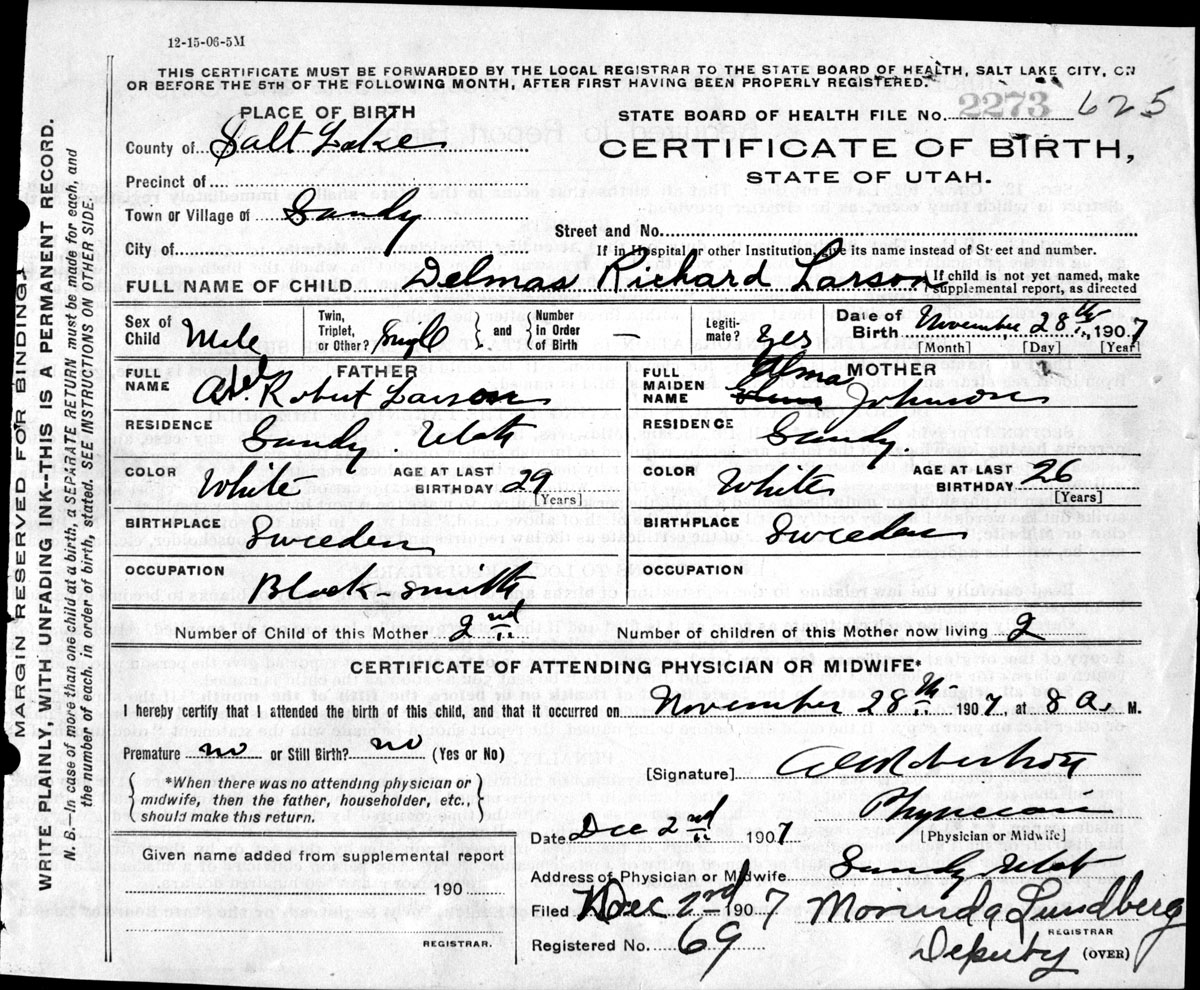 12-15-06-5M
THIS CERTIFICATE MUST BE FORWARDED BY THE LOCAL REGISTRAR TO THE STATE BOARD OF HEALTH, SALT LAKE CITY, ON
OR BEFORE THE 5TH OF THE FOLLOWING MONTH, AFTER FIRST HAVING BEEN PROPERLY REGISTERED.
PLACE OF BIRTH
STATE BOARD OF HEALTH FILE No. 2273 625
County of Salt Lake
CERTIFICATE OF BIRTH,
STATE OF UTAH.
Precinct of
Town or Village of Sandy
Street and No.
City of
If in Hospital or other Institution, give its name instead of Street and number.
FULL NAME OF CHILD Delmas Richard Larson
If child is not yet named, make
supplemental report, as directed
Sex of Child Male
Twin, Triplet, or Other? Single
and Number in Order of Birth —
Legitimate? yes
Date of Birth November 28th, 1907
[Month] [Day] [Year]
FATHER
FULL NAME Axel Robert Larson
RESIDENCE Sandy Utah
COLOR White
AGE AT LAST BIRTHDAY 29
[Years]
BIRTHPLACE Sweeden
OCCUPATION Black-smith
MOTHER
FULL MAIDEN NAME Alma Johnson
RESIDENCE Sandy
COLOR White
AGE AT LAST BIRTHDAY 26
[Years]
BIRTHPLACE Sweeden
OCCUPATION
Number of Child of this Mother 2nd
Number of children of this Mother now living 2
CERTIFICATE OF ATTENDING PHYSICIAN OR MIDWIFE*
I hereby certify that I attended the birth of this child, and that it occurred on November 28th 1907, at 8 a. M.
Premature no or Still Birth? no (Yes or No)
*When there was no attending physician or
midwife, then the father, householder, etc.,
should make this return.
[Signature]
Physician
[Physician or Midwife]
Date Dec 2nd 1907
Address of Physician or Midwife Sandy Utah
Given name added from supplemental report
190
REGISTRAR.
Filed Dec 2nd 1907
Lundberg
REGISTRAR
Registered No. 69
Deputy (OVER)
MARGIN RESERVED FOR BINDING.
WRITE PLAINLY, WITH UNFADING INK--THIS IS A PERMANENT RECORD.
N. B.--In case of more than one child at a birth, a SEPARATE RETURN must be made for each, and
the number of each, in order of birth, stated. SEE INSTRUCTIONS ON OTHER SIDE.